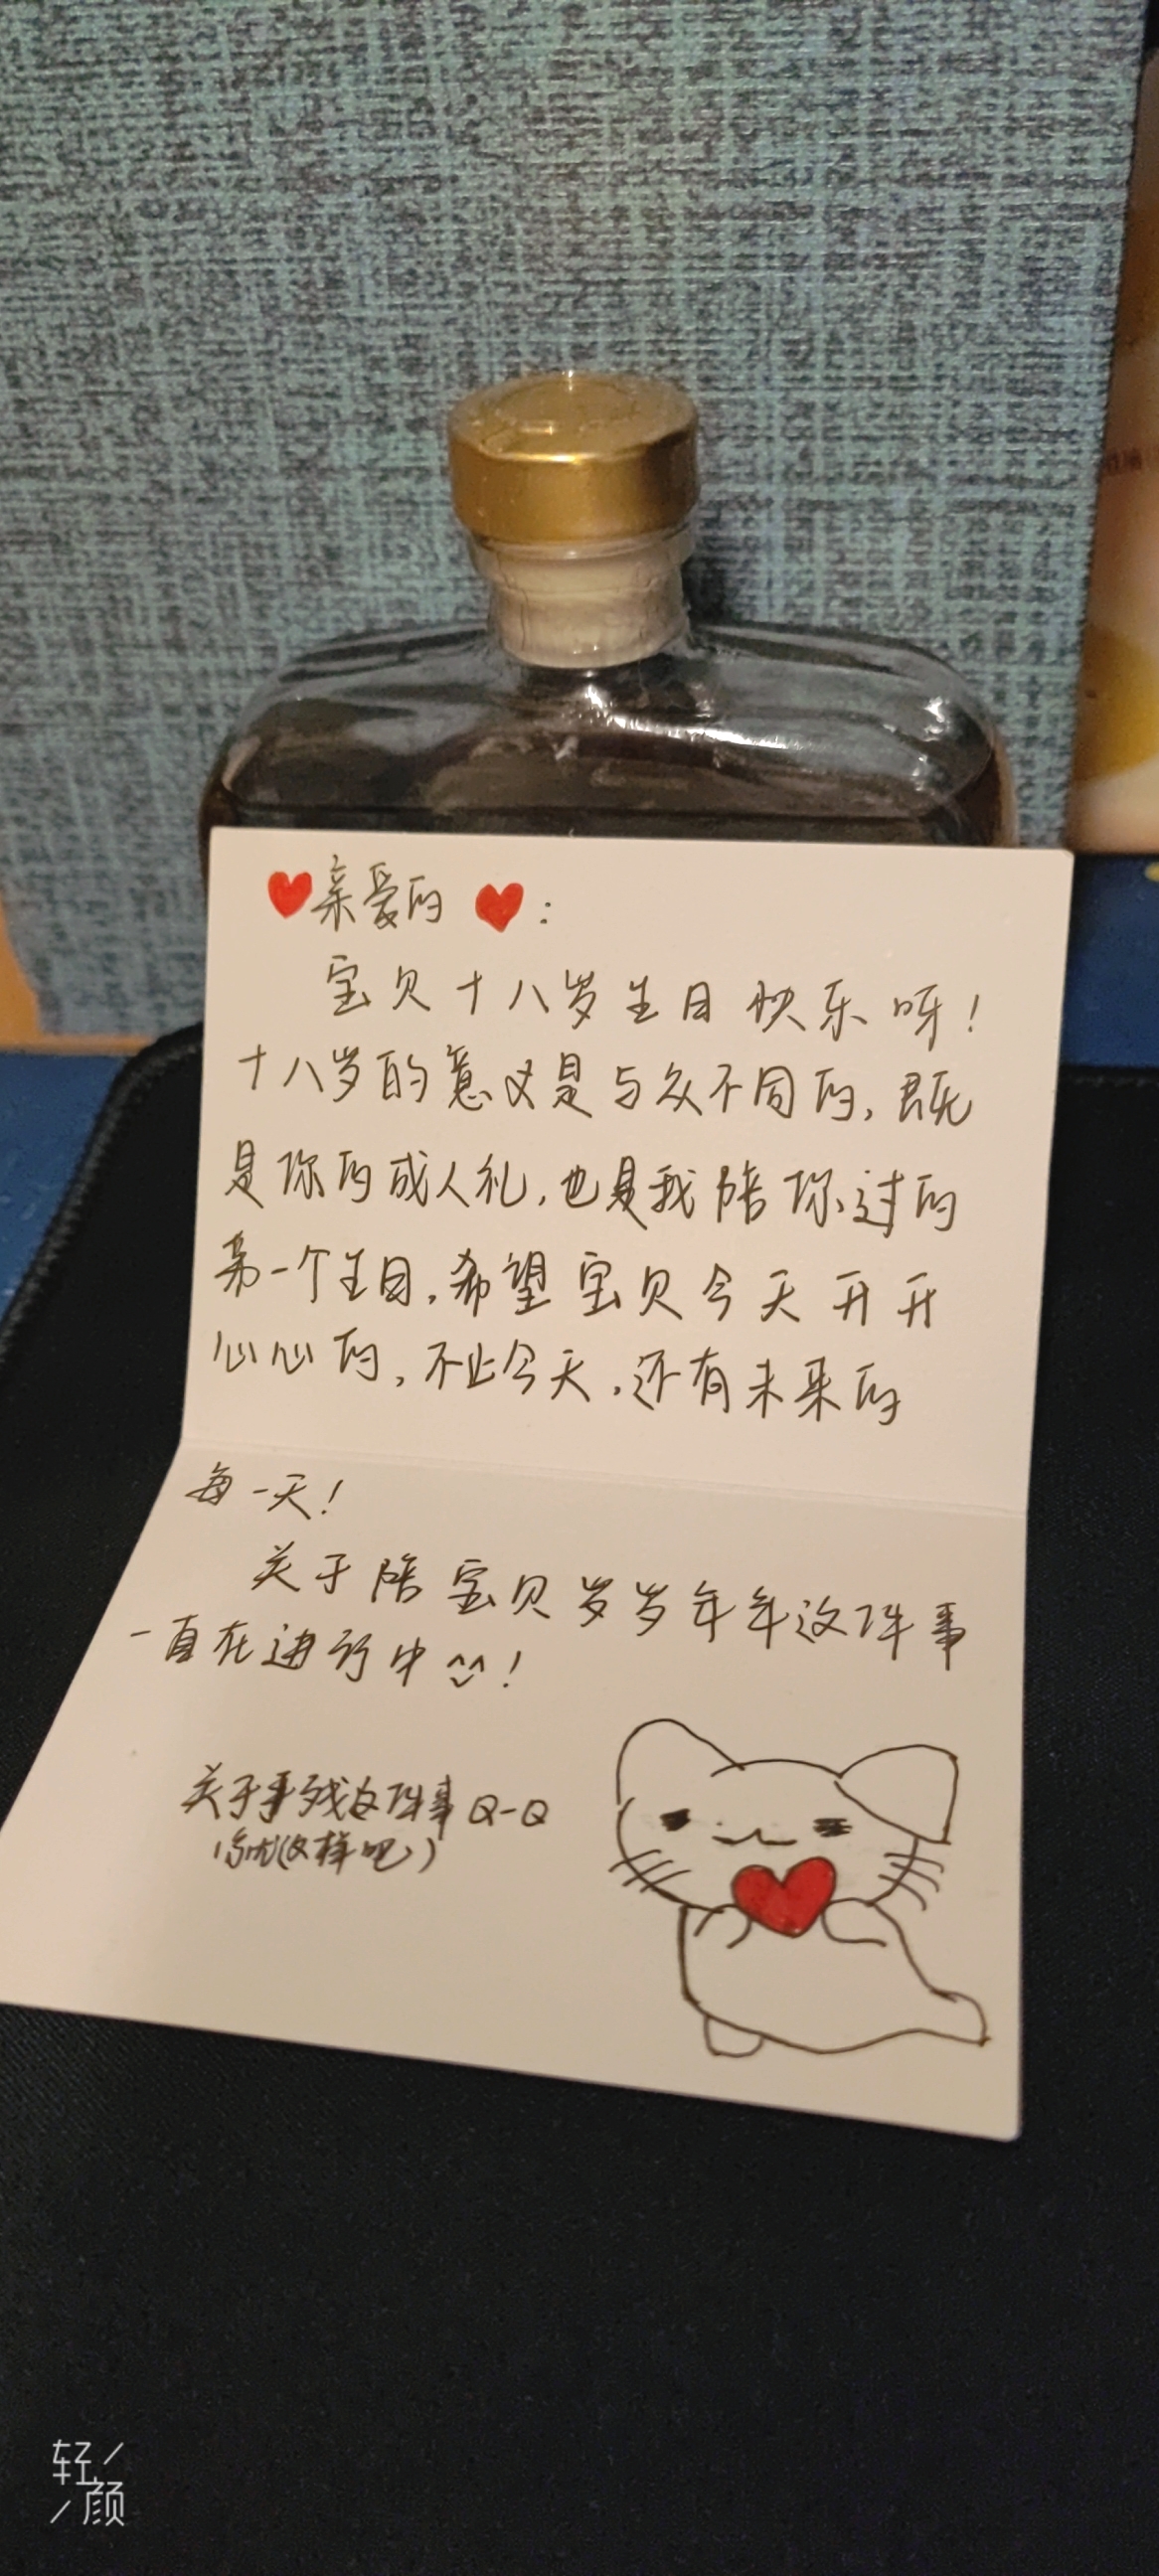 ❤亲爱的❤:
宝贝十八岁生日快乐呀!
十八岁的意义是与众不同的,既
是你的成人礼,也是我陪你过的
第一个生日,希望宝贝今天开开
心心的,不止今天,还有未来的
每一天!
关于陪宝贝岁岁年年这件事
一直在进行中^^!
关于手残这件事Q-Q
(就这样吧)
轻颜